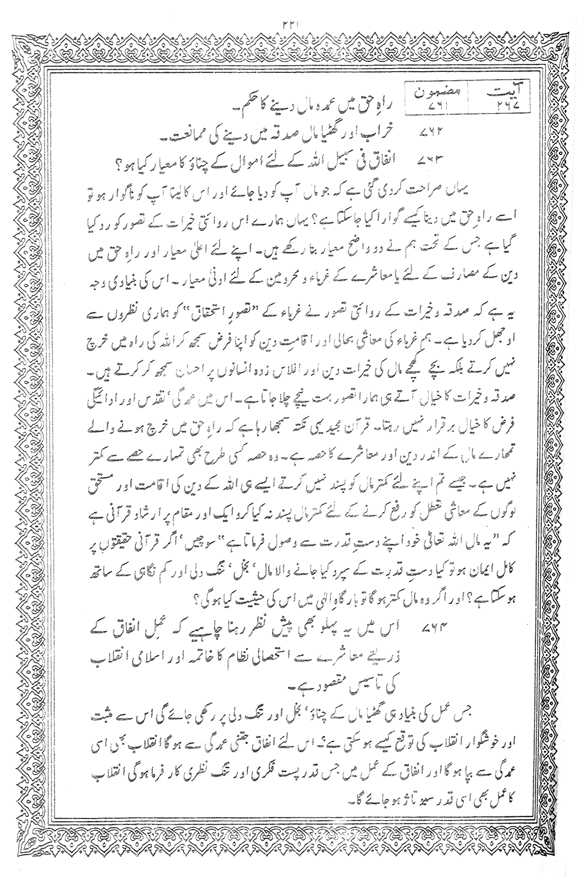 ۲۲۱
آیت مضمون
۲۶۷ ۷۶۱ راہِ حق میں عمدہ مال دینے کا حکم۔
۷۶۲ خراب اور گھٹیا مال صدقہ میں دینے کی ممانعت۔
۷۶۳ انفاق فی سبیل اللہ کے لئے اموال کے چناؤ کا معیار کیا ہو؟
یہاں صراحت کردی گئی ہے کہ جو مال آپ کو دیا جائے اور اس کا لینا آپ کو ناگوار ہو تو
اسے راہِ حق میں دینا کیسے گوارا کیا جاسکتا ہے؟ یہاں ہمارے اس روائتی خیرات کے تصور کو رد کیا
گیا ہے جس کے تحت ہم نے دو واضح معیار بنا رکھے ہیں۔ اپنے لئے اعلیٰ معیار اور راہِ حق میں
دین کے مصارف کے لئے یا معاشرے کے غرباء و محرومین کے لئے ادنیٰ معیار۔ اس کی بنیادی وجہ
یہ ہے کہ صدقہ و خیرات کے روائتی تصور نے غرباء کے "تصورِ استحقاق" کو ہماری نظروں سے
اوجھل کردیا ہے۔ ہم غرباء کی معاشی بحالی اور اقامتِ دین کو اپنا فرض سمجھ کر اللہ کی راہ میں خرچ
نہیں کرتے بلکہ بچے کھچے مال کی خیرات دین اور افلاس زدہ انسانوں پر احسان سمجھ کر کرتے ہیں۔
صدقہ و خیرات کا خیال آتے ہی ہمارا تصور بہت نیچے چلا جاتا ہے۔ اس میں عمدگی، تقدس اور ادائیگی
فرض کا خیال برقرار نہیں رہتا۔ قرآن مجید یہی نکتہ سمجھا رہا ہے کہ راہِ حق میں خرچ ہونے والے
تمہارے مال کے اندر دین اور معاشرے کا حصہ ہے۔ وہ حصہ کسی طرح بھی تمہارے حصے سے کمتر
نہیں ہے۔ جیسے تم اپنے لئے کمتر مال کو پسند نہیں کرتے ایسے ہی اللہ کے دین کی اقامت اور مستحق
لوگوں کے معاشی تعطل کو رفع کرنے کے لئے کمتر مال پسند نہ کیا کرو ایک اور مقام پر ارشاد قرآنی ہے
کہ "یہ مال اللہ تعالیٰ خود اپنے دستِ قدرت سے وصول فرماتا ہے" سوچیں اگر قرآنی حقیقتوں پر
کامل ایمان ہو تو کیا دستِ قدرت کے سپرد کیا جانے والا مال، بخل، تنگ دلی اور کم نگاہی کے ساتھ
ہوسکتا ہے؟ اور اگر وہ مال کمتر ہوگا تو بارگاہِ الٰہی میں اس کی حیثیت کیا ہوگی؟
۷۶۴ اس میں یہ پہلو بھی پیش نظر رہنا چاہیے کہ عملِ انفاق کے
ذریعے معاشرے سے استحصالی نظام کا خاتمہ اور اسلامی انقلاب
کی تاسیس مقصود ہے۔
جس عمل کی بنیاد ہی گھٹیا مال کے چناؤ، بخل اور تنگ دلی پر رکھی جائے گی اس سے مثبت
اور خوشگوار انقلاب کی توقع کیسے ہوسکتی ہے؟ اس لئے انفاق جتنی عمدگی سے ہوگا انقلاب بھی اسی
عمدگی سے بپا ہوگا اور انفاق کے عمل میں جس قدر پست فکری اور تنگ نظری کار فرما ہوگی انقلاب
کا عمل بھی اسی قدر سبوتاژ ہو جائے گا۔